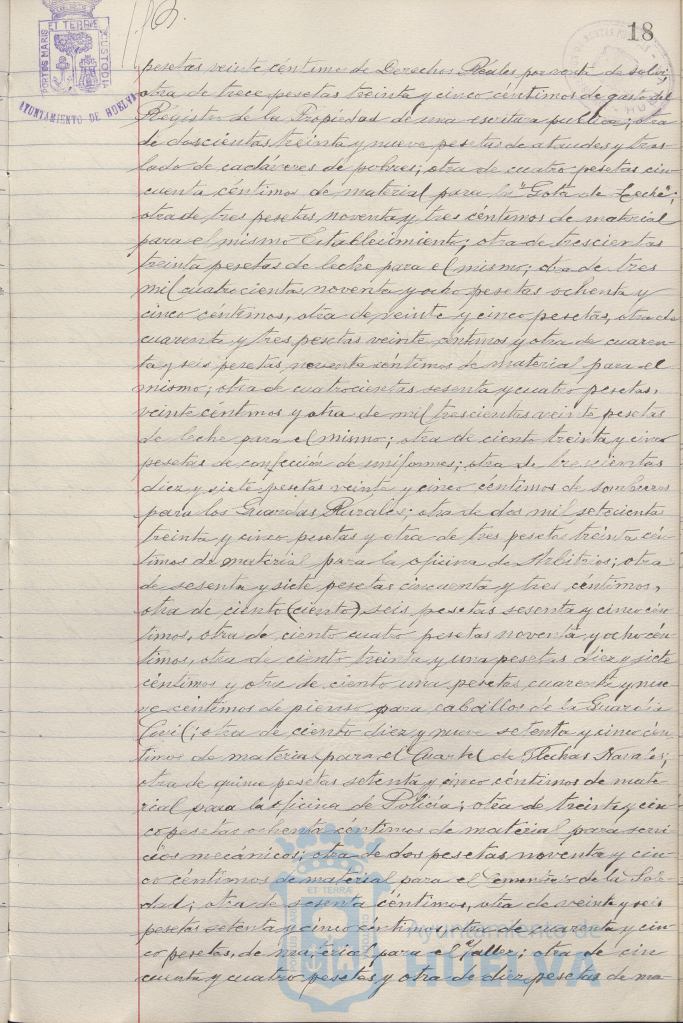 18
PORTUS MARIS ET TERRAE CUSTODIA
AYUNTAMIENTO DE HUELVA
pesetas veinte céntimo de Derechos Reales por carta de
otra de trece pesetas treinta y cinco céntimos de gasto del
Régistro de la Propiedad de una escritura pública; otra
de doscientas treinta y nueve pesetas de ataudes y tras-
lado de cadáveres de pobres; otra de cuatro pesetas cin-
cuenta céntimos de material para la "Gota de Leche";
otra de tres pesetas, noventa y tres céntimos de material
para el mismo Establecimiento; otra de trescientas
treinta pesetas de leche para el mismo; otra de tres
mil cuatrocientas noventa y ocho pesetas ochenta y
cinco céntimos, otra de veinte y cinco pesetas, otra de
cuarenta y tres pesetas veinte céntimos y otra de cuaren-
ta y seis pesetas, noventa céntimos de material para el
mismo; otra de cuatrocientas sesenta y cuatro pesetas,
veinte céntimos y otra de mil trescientas veinte pesetas
de leche para el mismo; otra de ciento treinta y cinco
pesetas de confección de uniformes; otra de trescientas
diez y siete pesetas veinte y cinco céntimos de sombreros
para los Guardas Rurales; otra de dos mil setecientas
treinta y cinco pesetas y otra de tres pesetas treinta cén-
timos de material para la oficina de Arbitrios; otra
de sesenta y siete pesetas cincuenta y tres céntimos,
otra de ciento (ciento) seis pesetas sesenta y cinco cén-
timos, otra de ciento cuatro pesetas noventa y ocho cén-
timos, otra de ciento treinta y una pesetas diez y siete
céntimos y otra de ciento una pesetas, cuarenta y nue-
ve céntimos de pienso para caballos de la Guardia
Civil; otra de ciento diez y nueve setenta y cinco cén-
timos de material para el Cuartel de Flechas Navales;
otra de quince pesetas setenta y cinco céntimos de mate-
rial para la oficina de Policía; otra de treinta y cin-
co pesetas ochenta céntimos de material para servi-
cios mecánicos; otra de dos pesetas noventa y cin-
co céntimos de material para el Cementerio de la Sole-
dad; otra de sesenta céntimos, otra de veinte y seis
pesetas setenta y cinco céntimos, otra de cuarenta y cin-
co pesetas, de material para el Taller; otra de cin-
cuenta y cuatro pesetas y otra de diez pesetas de ma-
Ayuntamiento de
HUELVA